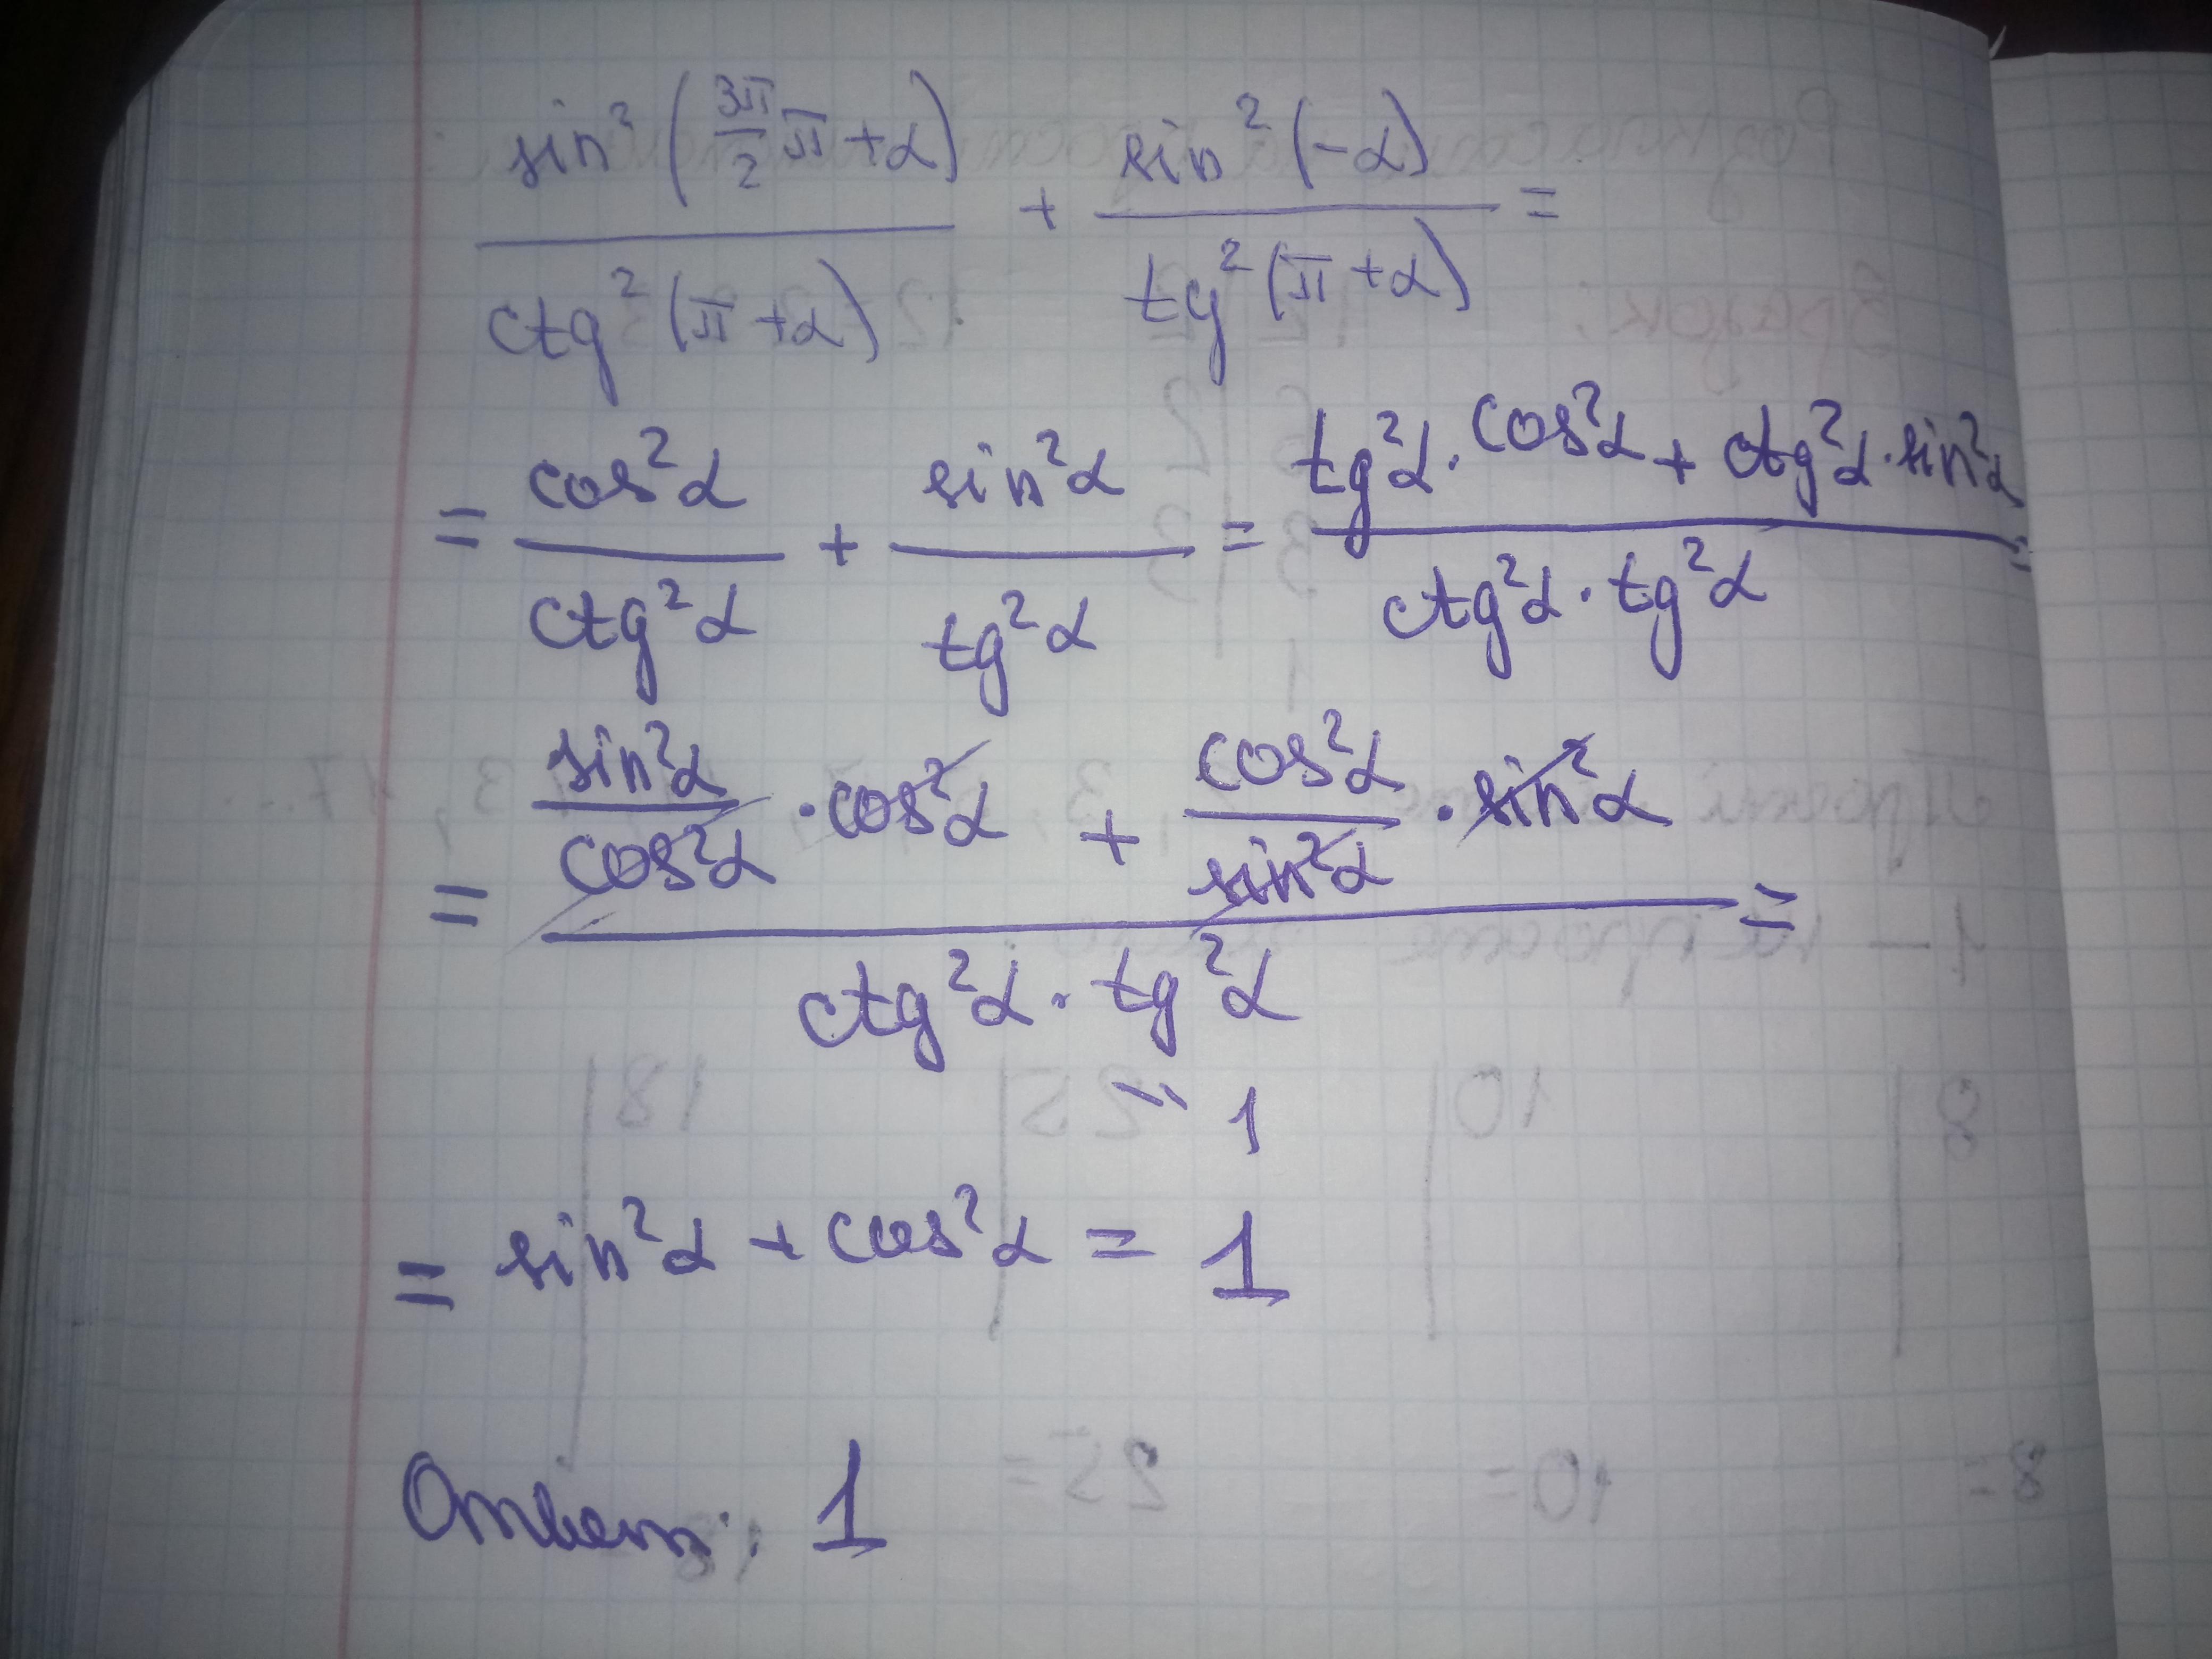 sin² (3π/2 π + α) / ctg² (π + α) + sin² (-α) / tg² (π + α) =
= cos²α / ctg²α + sin²α / tg²α = tg²α · cos²α + ctg²α · sin²α / ctg²α · tg²α =
= sin²α / cos²α · cos²α + cos²α / sin²α · sin²α / ctg²α · tg²α =
= 1
= sin²α + cos²α = 1
Ответ: 1